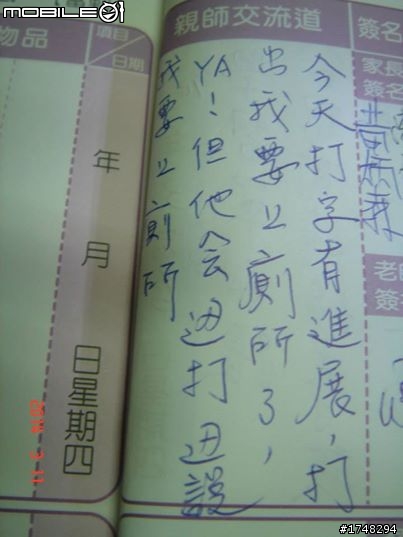 MOBILE01
物品
項目
日期
年
月
日星期四
親師交流道
今天打字有進展，打
出我要上廁所了，
YA！但他会边打边說
我要上廁所
簽名
家長
簽名
老師
簽
#1748294